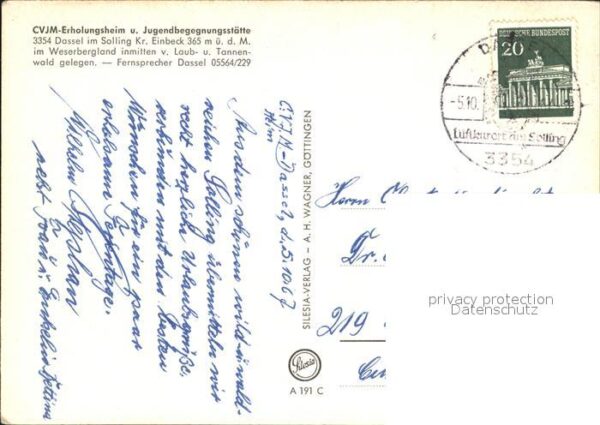 CVJM-Erholungsheim u. Jugendbegegnungsstätte
3354 Dassel im Solling Kr. Einbeck 365 m ü. d. M.
im Weserbergland inmitten v. Laub- u. Tannen-
wald gelegen. — Fernsprecher Dassel 05564/229
CVJM-Dassel, d. 5.10.67
Aus dem schönen wild- u. wald-
reichen Solling übermitteln wir
recht herzliche Urlaubsgrüße,
verbunden mit den besten
Wünschen für ein paar
erholsame
Wilhelm
nebst Frau u.
SILESIA-VERLAG – A. H. WAGNER, GÖTTINGEN
Silesia
A 191 C
DEUTSCHE BUNDESPOST
20
-5.10.
Luftkurort im Solling
3354
Herrn
Dr.
219
privacy protection
Datenschutz